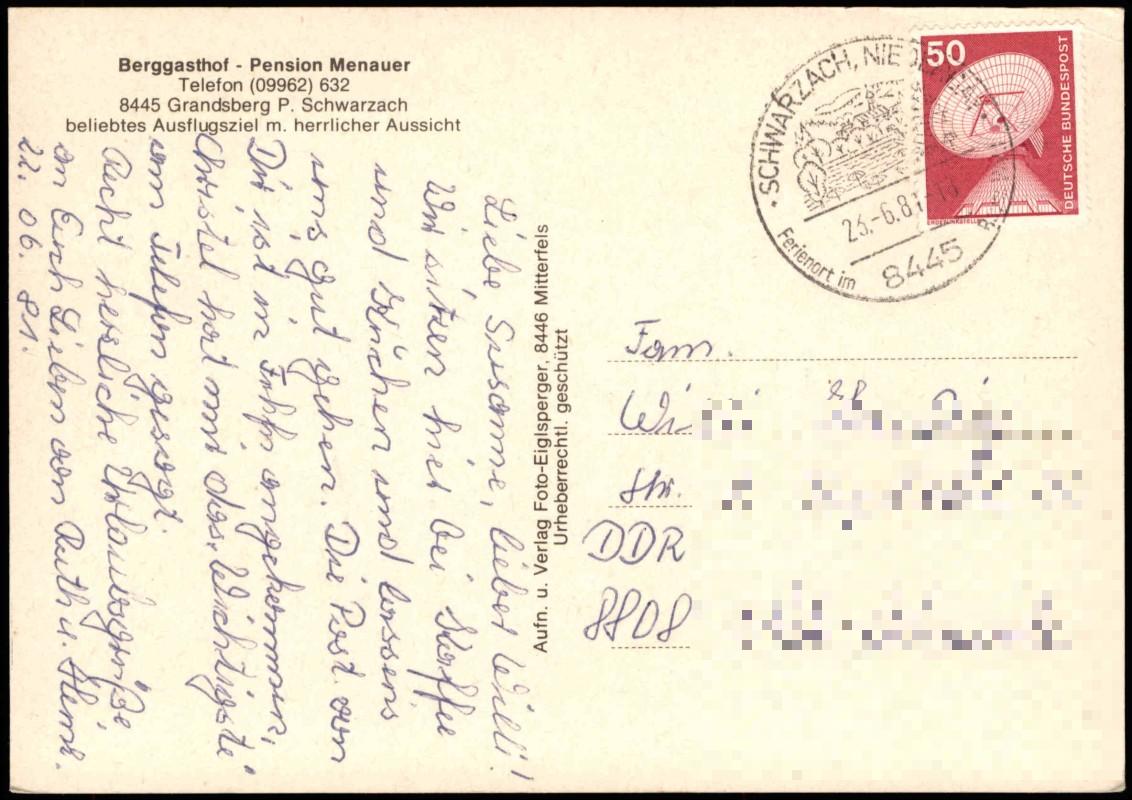 Berggasthof - Pension Menauer
Telefon (09962) 632
8445 Grandsberg P. Schwarzach
beliebtes Ausflugsziel m. herrlicher Aussicht
Liebe Susanne, lieber Willi!
Wir sitzen hier bei Kaffee
und Kuchen und lassens
uns gut gehen. Die Post von
Dir ist in Frhfr angekommen,
Christel hat mir das, Wichtigste"
vom Telefon gesagt.
Recht herzliche Urlaubsgrüße
an Euch Lieben von Ruth u. Heinz.
22. 06. 81.
Aufn. u. Verlag Foto-Eiglsperger, 8446 Mitterfels
Urheberrechtl. geschützt
SCHWARZACH,
23.-6.81
Ferienort im
8445
50
DEUTSCHE BUNDESPOST
ERDEFUNKSTELLE
Fam.
Wi
Str.
DDR
8808